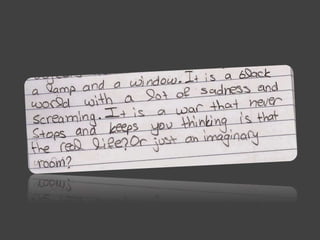 a lamp and a window. It is a black
world with a lot of sadness and
screaming. It is a war that never
stops and keeps you thinking is that
the real life? Or just an imaginary
room?